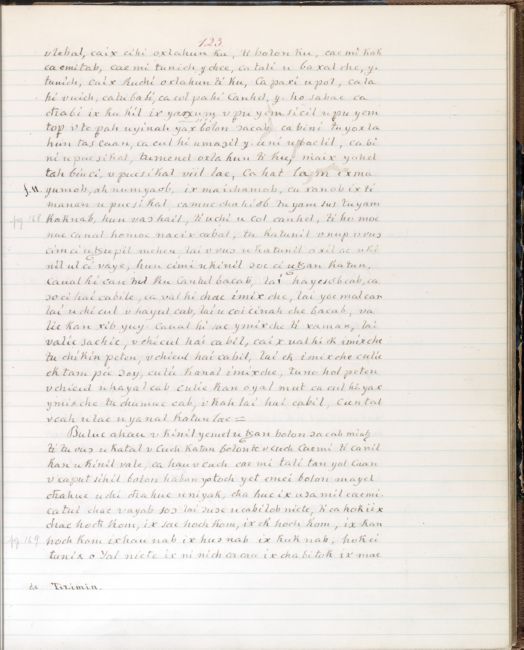 123
vlebal, caix cihi oxlahun ku, ti bolon ku, caemi kak
ca emitab, caemi tunich y chee, ca tali u baxal che, y.
tunich, caix kuchi oxlahun ti ku, Ca paxi u pol, ca la
hi vuich, catubabi, ca col pahi Canhel, y. ho sabac ca
chabi ix kukil ix yaxum y pu yem sicil u pu yem
top v te pah uyinah yax bolon sacab ca bini tu yoxla
hun tas caan, ca cul hi umazil y. u ni u baclil, ca bi
ni u pucsikal, tumenel oxlahun ti ku, maix yohel
tah binci, v pucsikal veil lae, Ca hat ixma
f. 11. yumob, ah numyaob, ix maichamob, cu xanob ix ti
manan u pucsikal, camuc chahiob tuyam sus tuyam
pg. 168 kaknab, hun vashail, ti uchi u col canhel, ti ho moc
nac canal homoc nacix cabal, tu katunil
cimci u tzupil mehen, lai v vus u katunil
nil ul ci vaye, hun cimi u kinil soc ci utzan Katun,
Canal hi can tul ku Cantul bacab, lai hayesob cab, ca
so ci hai cabile, ca val hi chac imix che, lai yoc malcax
lai uchi cul v hayal cab, lai u coticinah che bacab, va
lic kan xib yuy. Canal hi sac ymix che ti xaman, lai
valic sachic, v chicul hai cabil, caix val hi ek imix che
tu chikin peten, v chicul hai cabil, lai ek imix che culic
ek tam pic soy, culic kanal imix che, tu nohol peten
v chicul u hayal cab culic kan oyal mut ca cul hi yax
ymix che tu chumuc cab, v kahlai hai cabil, cuntal
vcah u lac u yanal katun lae =
Buluc ahau v kinil yemel u tzan bolon sacab
ti tu vus u katal v Cuch katun bolonte v cuch Caemi ti canil
kan u kinil vale, ca hau v cuch cae mi tali tan yol caan
v caput sihil bolon haban yotoch yet emci bolon mayel
chahuc uchi chahuc uniyak, cha huc ix usamil caemi.
ca tul chac vayab sos lai suse ucabilob nicte, ti ca hokiex
chac hoch kom, ix sac hoch kom, ix ek hoch kom, ix kan
pg. 169. hoch kom ix hau nab ix hus nab ix kuk nab, hok ci
tun ix o yal nicte ix ni nich cacau ix chabi tok ix mac
de Tizimin.